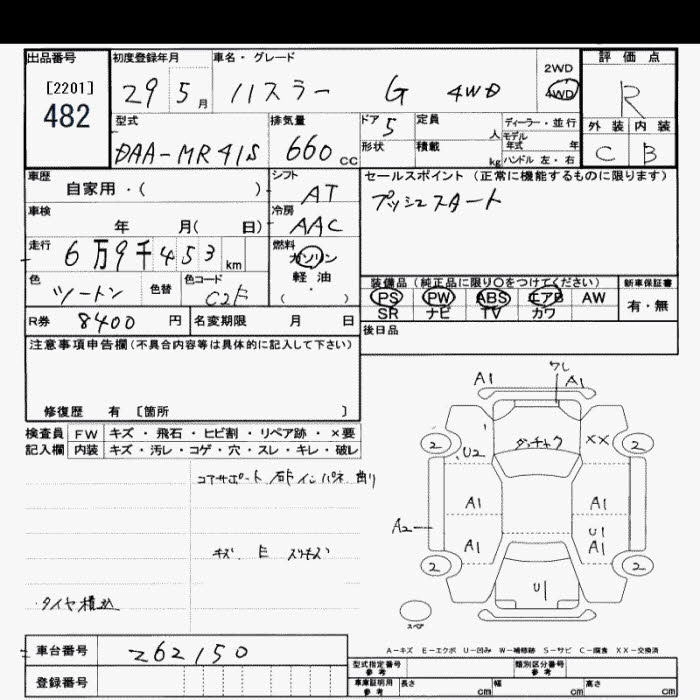 出品番号
[2201]
482
初度登録年月
29 5月
車名・グレード
ハスラー G 4WD
2WD
4WD
評価点
R
外装 内装
C B
型式
DAA-MR41S
排気量
660 cc
ドア 5
形状
定員 人
積載 kg
ディーラー・並行
モデル年式 年
ハンドル 左・右
車歴
自家用・( )
シフト
AT
車検
年 月( 日)
冷房
AAC
走行
6万9千453km
燃料
ガソリン
軽・油
・
( )
色
ツートン
色替
色コード
C2F
R券 8400円
名変期限 月 日
セールスポイント(正常に機能するものに限ります)
プッシュスタート
装備品(純正品に限り○をつけてください)
PS PW ABS エアB AW
SR ナビ TV カワ
新車保証書
有・無
後日品
注意事項申告欄(不具合内容等は具体的に記入して下さい)
修復歴 有 〔箇所 〕
検査員記入欄
FW キズ・飛石・ヒビ割・リペア跡・×要
内装 キズ・汚レ・コゲ・穴・スレ・キレ・破レ
コアサポート 右Fインパネ 曲り
キズ
タイヤ積込
A1 ワレ A1
2 U2 XX 2
A1 A1
A2 U1
A1 A1
2 U1 2
スペア
A-キズ E-エクボ U-凹み W-補修跡 S-サビ C-腐食 XX-交換済
車台番号 262150
登録番号
型式指定番号
参考
類別区分番号
参考
車庫証明用
参考
長さ cm 幅 cm 高さ cm